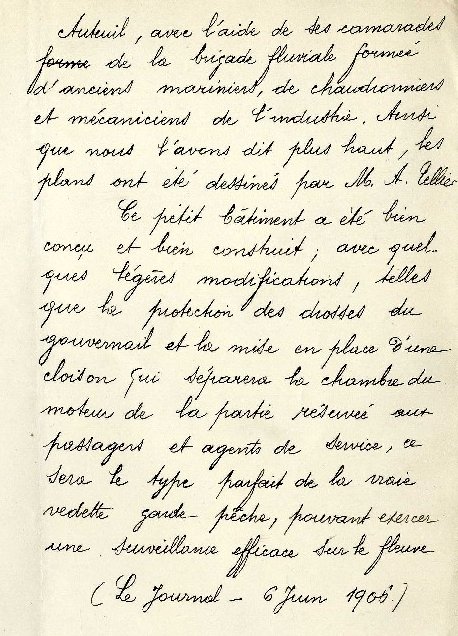 Auteuil, avec l'aide de ses camarades
forme de la brigade fluviale formée
d'anciens mariniers, de chaudronniers
et mécaniciens de l'industrie. Ainsi
que nous l'avons dit plus haut, les
plans ont été dessinés par M. A. Tellier
Ce petit bâtiment a été bien
conçu et bien construit ; avec quel-
ques légères modifications, telles
que la protection des drosses du
gouvernail et la mise en place d'une
cloison qui séparera la chambre du
moteur de la partie réservée aux
passagers et agents de service, ce
sera le type parfait de la vraie
vedette garde-pêche, pouvant exercer
une surveillance efficace sur le fleuve
(Le Journal - 6 Juin